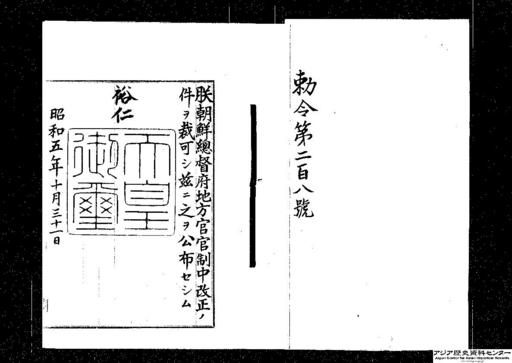 勅令第二百八號
朕朝鮮總督府地方官官制中改正ノ
件ヲ裁可シ茲ニ之ヲ公布セシム
裕仁
天皇
御璽
昭和五年十月三十一日
アジア歴史資料センター
Japan Center for Asian Historical Records